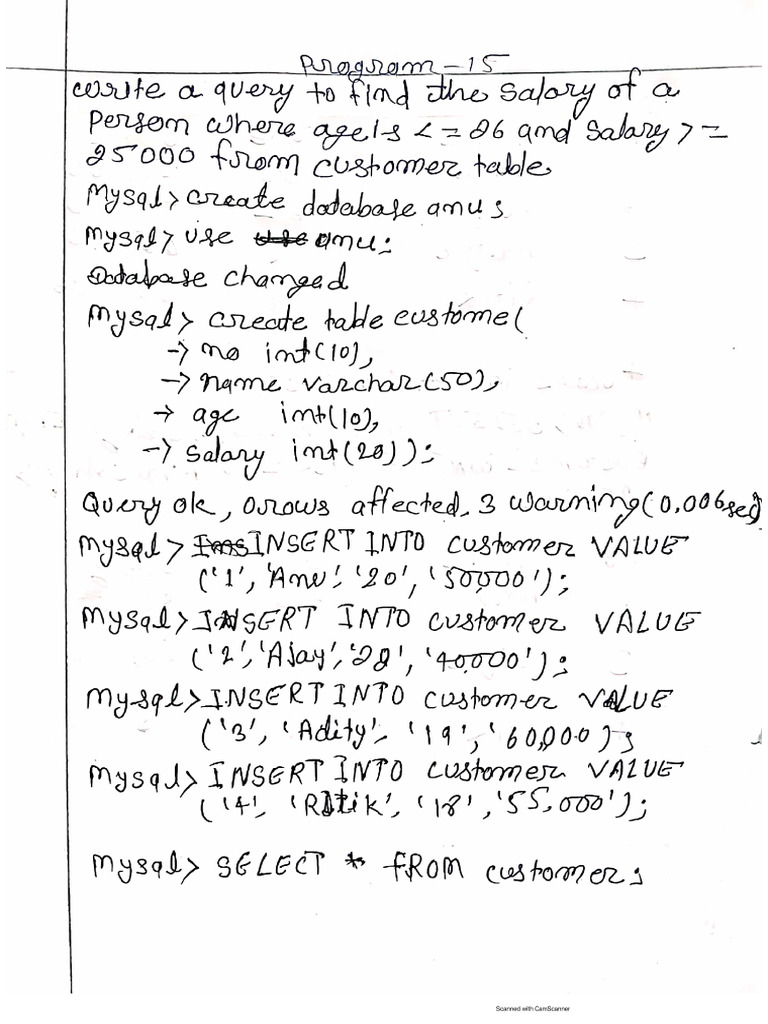 Program-15
Write a query to find the salary of a
Person where age is <=26 and salary >=
25000 from customer table
Mysql> create database anu;
Mysql> use anu;
Database changed
Mysql> create table custome(
-> no int(10),
-> name varchar(50),
-> age int(10),
-> salary int(20));
Query ok, 0 rows affected, 3 warning (0.006 sec)
Mysql> INSERT INTO customer VALUE
('1', 'Anu', '20', '50,000');
Mysql> INSERT INTO customer VALUE
('2', 'Ajay', '22', '40,000');
Mysql> INSERT INTO customer VALUE
('3', 'Adity', '19', '60,000);
Mysql> INSERT INTO customer VALUE
('4', 'Ritik', '18', '55,000');
Mysql> SELECT * FROM customer;
Scanned with CamScanner